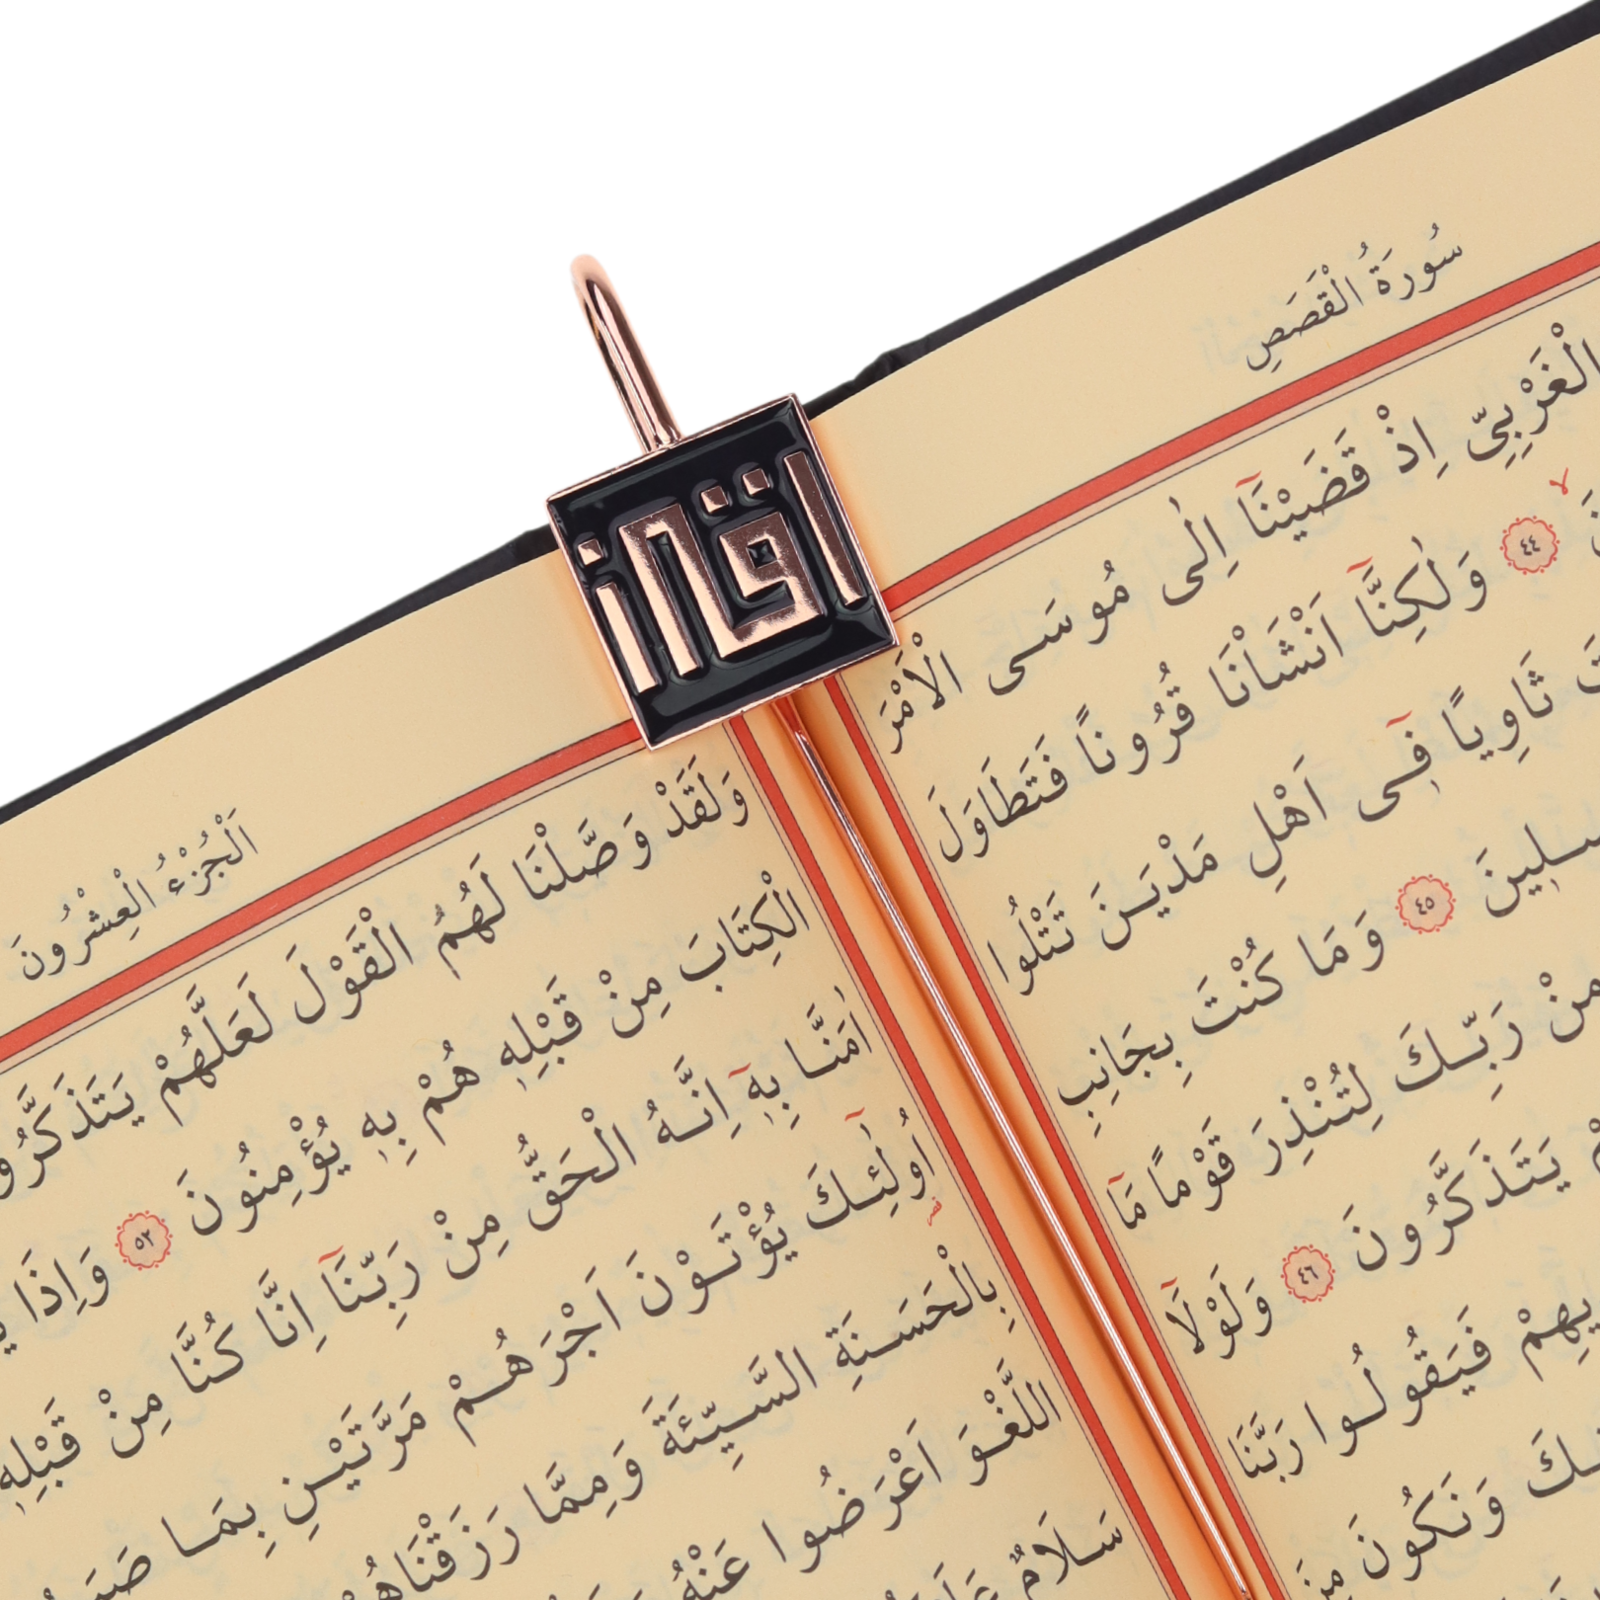 اقرأ
سُورَةُ الْقَصَصِ
الْغَرْبِيِّ اِذْ قَضَيْنَٓا اِلٰى مُوسَى الْاَمْرَ
٤٤ وَلٰكِنَّٓا اَنْشَاْنَا قُرُونًا فَتَطَاوَلَ
ثَاوِيًا فٖٓى اَهْلِ مَدْيَنَ تَتْلُوا
٤٥ وَمَا كُنْتَ بِجَانِبِ
مِنْ رَبِّكَ لِتُنْذِرَ قَوْمًا مَٓا
يَتَذَكَّرُونَ ٤٦ وَلَوْلَٓا
فَيَقُولُوا رَبَّنَا
وَنَكُونَ مِنَ
اَلْجُزْءُ الْعِشْرُونَ
وَلَقَدْ وَصَّلْنَا لَهُمُ الْقَوْلَ لَعَلَّهُمْ يَتَذَكَّرُو
الْكِتَابَ مِنْ قَبْلِهٖ هُمْ بِهٖ يُؤْمِنُونَ ٥٢ وَاِذَا
اٰمَنَّا بِهٖٓ اِنَّهُ الْحَقُّ مِنْ رَبِّنَٓا اِنَّا كُنَّا مِنْ قَبْلِهٖ
اُولٰٓئِكَ يُؤْتَوْنَ اَجْرَهُمْ مَرَّتَيْنِ بِمَا
بِالْحَسَنَةِ السَّيِّئَةَ وَمِمَّا رَزَقْنَاهُ
اللَّغْوَ اَعْرَضُوا عَنْهُ
سَلَامٌ